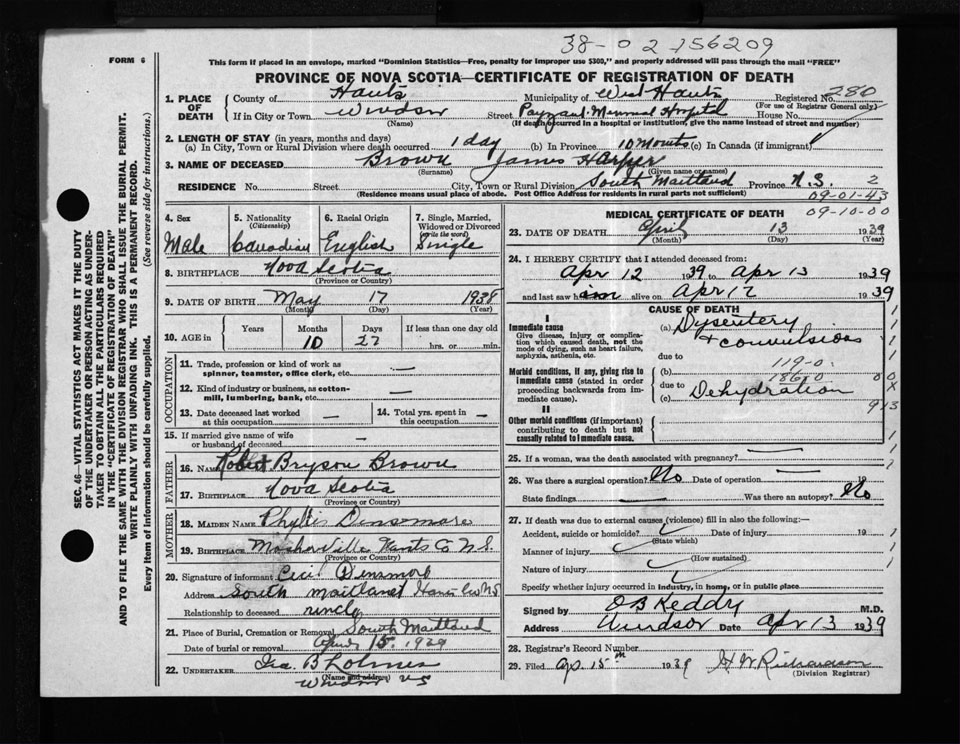 38-02 156209
FORM 6
This form if placed in an envelope, marked "Dominion Statistics—Free, penalty for improper use $300," and properly addressed will pass through the mail "FREE"
PROVINCE OF NOVA SCOTIA—CERTIFICATE OF REGISTRATION OF DEATH
1. PLACE OF DEATH County of Hants Municipality of West Hants Registered No. 280
(For use of Registrar General only)
If in City or Town Windsor Street Payzant Memorial Hospital House No.
(Name) (If death occurred in a hospital or institution, give the name instead of street and number)
2. LENGTH OF STAY (in years, months and days)
(a) In City, Town or Rural Division where death occurred 1 day (b) In Province 10 Months (c) In Canada (if immigrant)
3. NAME OF DECEASED Brown James Harper
(Surname) (Given name or names)
RESIDENCE No. Street City, Town or Rural Division South Maitland Province N.S. 2
(Residence means usual place of abode. Post Office Address for residents in rural parts not sufficient)
09-01-43
09-10-00
4. Sex Male
5. Nationality (Citizenship) Canadian
6. Racial Origin English
7. Single, Married, Widowed or Divorced (write the word) Single
8. BIRTHPLACE Nova Scotia
(Province or Country)
9. DATE OF BIRTH May 17 1938
(Month) (Day) (Year)
10. AGE in Years Months Days If less than one day old
10 27 hrs. or min.
OCCUPATION
11. Trade, profession or kind of work as spinner, teamster, office clerk, etc. —
12. Kind of industry or business, as cotton-mill, lumbering, bank, etc. —
13. Date deceased last worked at this occupation —
14. Total yrs. spent in this occupation —
15. If married give name of wife or husband of deceased —
FATHER
16. NAME Robert Bryson Brown
17. BIRTHPLACE Nova Scotia
(Province or Country)
MOTHER
18. MAIDEN NAME Phyllis Densmore
19. BIRTHPLACE Mosherville Hants Co N.S.
(Province or Country)
20. Signature of informant Cecil Densmore
Address South Maitland Hants Co NS
Relationship to deceased uncle
21. Place of Burial, Cremation or Removal South Maitland
Date of burial or removal April 15, 1939
22. UNDERTAKER Ira B Lohnes
(Name and address)
Windsor NS
MEDICAL CERTIFICATE OF DEATH
23. DATE OF DEATH April 13 1939
(Month) (Day) (Year)
24. I HEREBY CERTIFY that I attended deceased from:
Apr 12 1939 to Apr 13 1939
and last saw him alive on Apr 12 1939
CAUSE OF DEATH
I
Immediate cause
Give disease, injury or complication which caused death, not the mode of dying, such as heart failure, asphyxia, asthenia, etc.
(a) Dysentery + convulsions
due to
119-0
Morbid conditions, if any, giving rise to immediate cause (stated in order proceeding backwards from immediate cause).
(b) 186-0
due to
(c) Dehydration
00
X
913
II
Other morbid conditions (if important) contributing to death but not causally related to immediate cause.
25. If a woman, was the death associated with pregnancy? —
26. Was there a surgical operation? No Date of operation —
State findings — Was there an autopsy? No
27. If death was due to external causes (violence) fill in also the following:—
Accident, suicide or homicide? Date of injury 19
(State which)
Manner of injury
(How sustained)
Nature of injury
Specify whether injury occurred in industry, in home, or in public place
Signed by O B Keddy M.D.
Address Windsor Date Apr 13 1939
28. Registrar's Record Number
29. Filed Ap. 15th 1939 H W Richardson
(Division Registrar)
SEC. 46—VITAL STATISTICS ACT MAKES IT THE DUTY
OF THE UNDERTAKER OR PERSON ACTING AS UNDERTAKER TO OBTAIN ALL THE PARTICULARS REQUIRED
IN THE "CERTIFICATE OF REGISTRATION OF DEATH"
AND TO FILE THE SAME WITH THE DIVISION REGISTRAR WHO SHALL ISSUE THE BURIAL PERMIT.
WRITE PLAINLY WITH UNFADING INK. THIS IS A PERMANENT RECORD.
Every item of information should be carefully supplied. (See reverse side for instructions.)